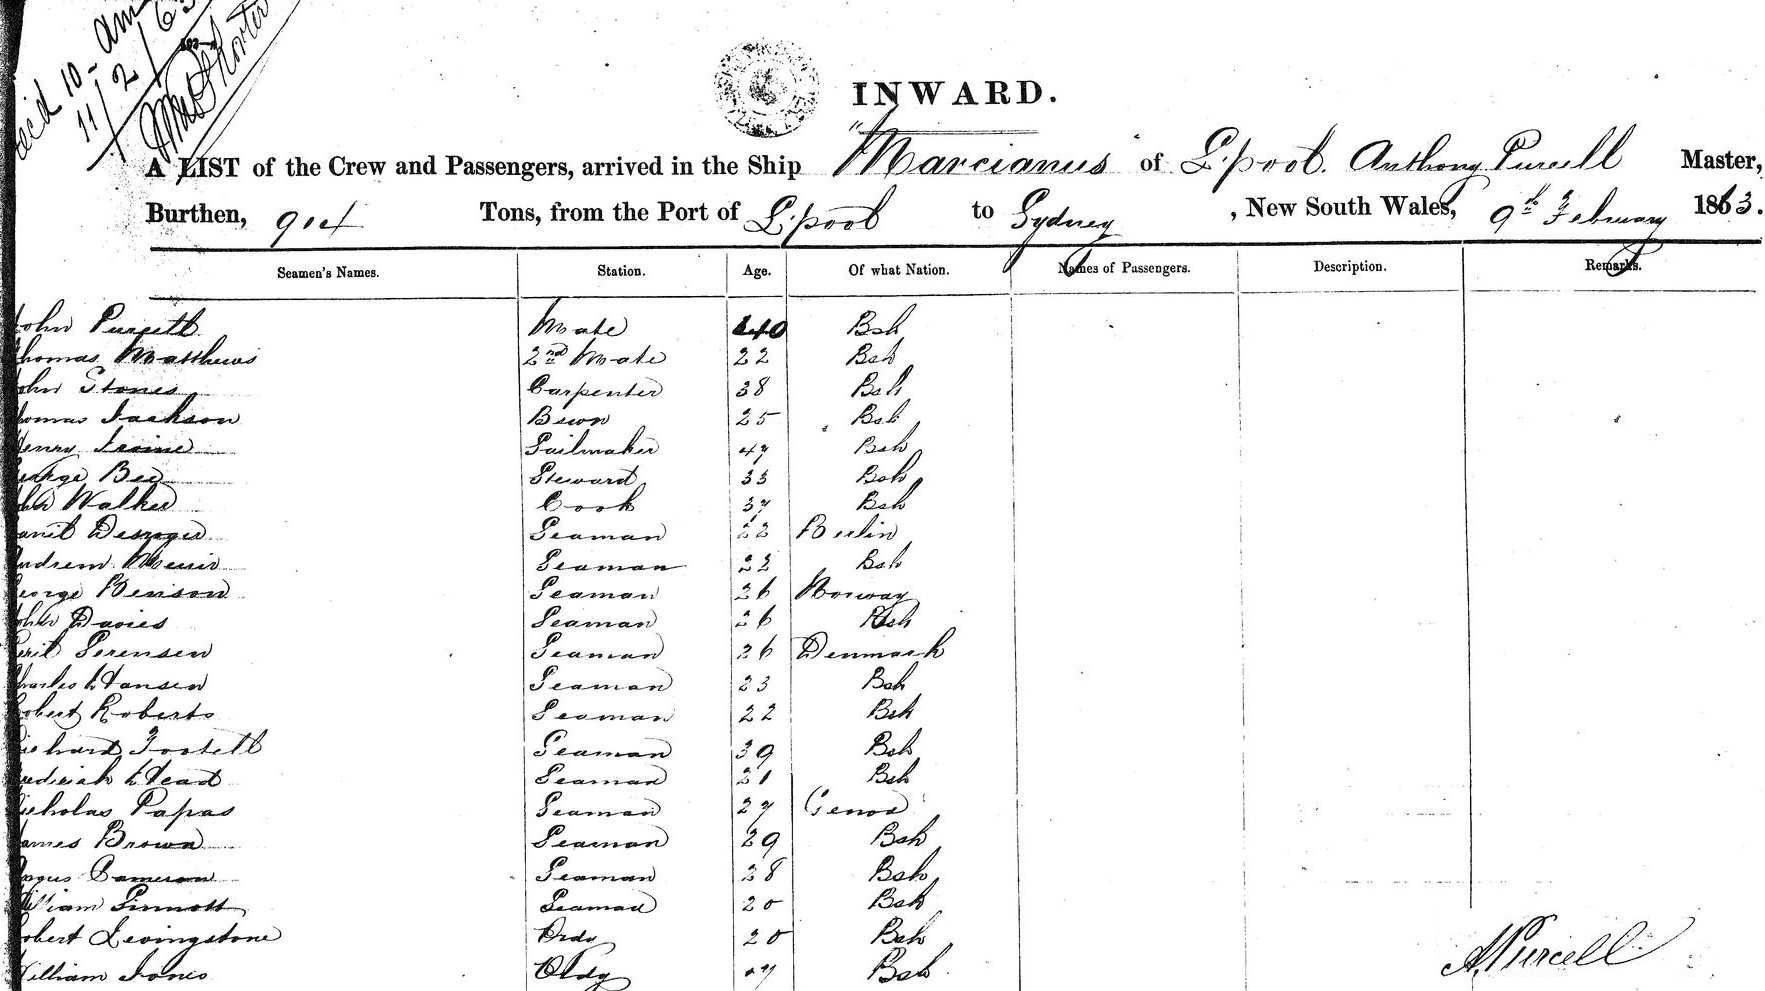 10 am
11/2/63
INWARD.
A LIST of the Crew and Passengers, arrived in the Ship "Marcianus" of L'pool. Anthony Purcell Master,
Burthen, 914 Tons, from the Port of L'pool to Sydney, New South Wales, 9th February 1863.
Seamen's Names. Station. Age. Of what Nation. Names of Passengers. Description. Remarks.
John Purcell Mate 40 Bsh
Thomas Matthews 2nd Mate 22 Bsh
John Stones Carpenter 38 Bsh
Thomas Jackson Bswn 25 Bsh
Henry Sailmaker 47 Bsh
George Bee Steward 33 Bsh
John Walker Cook 37 Bsh
Seaman 22 Berlin
Andrew Seaman 22 Bsh
George Benson Seaman 26 Norway
John Davies Seaman 26 Bsh
Sorensen Seaman 26 Denmark
Charles Hansen Seaman 23 Bsh
Robert Roberts Seaman 22 Bsh
Richard Footell Seaman 39 Bsh
Frederick Head Seaman 21 Bsh
Nicholas Papas Seaman 27 Genoa
James Brown Seaman 29 Bsh
Angus Cameron Seaman 28 Bsh
William Sinnott Seaman 20 Bsh
Robert Levingstone Ordy 20 Bsh
William Jones Bsh
A. Purcell